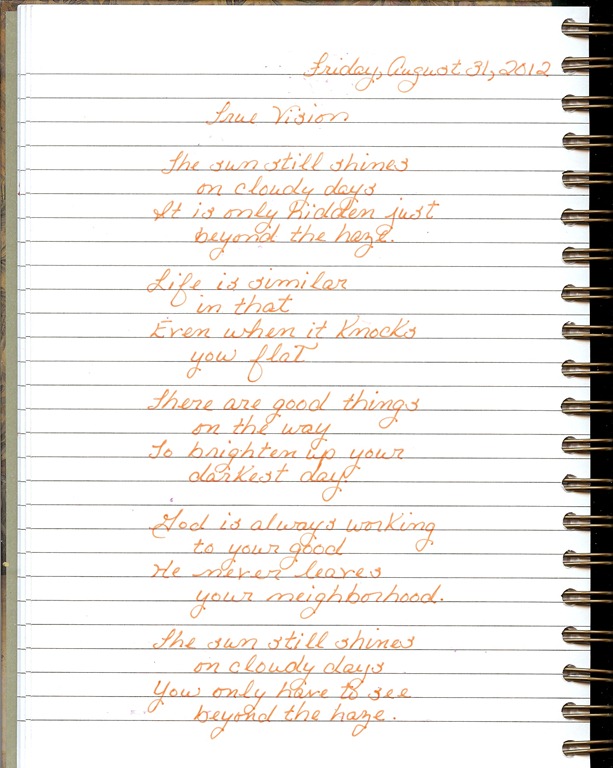 Friday, August 31, 2012
True Vision
The sun still shines
on cloudy days
It is only hidden just
beyond the haze.
Life is similar
in that
Even when it knocks
you flat
There are good things
on the way
To brighten up your
darkest day.
God is always working
to your good
He never leaves
your neighborhood.
The sun still shines
on cloudy days
You only have to see
beyond the haze.